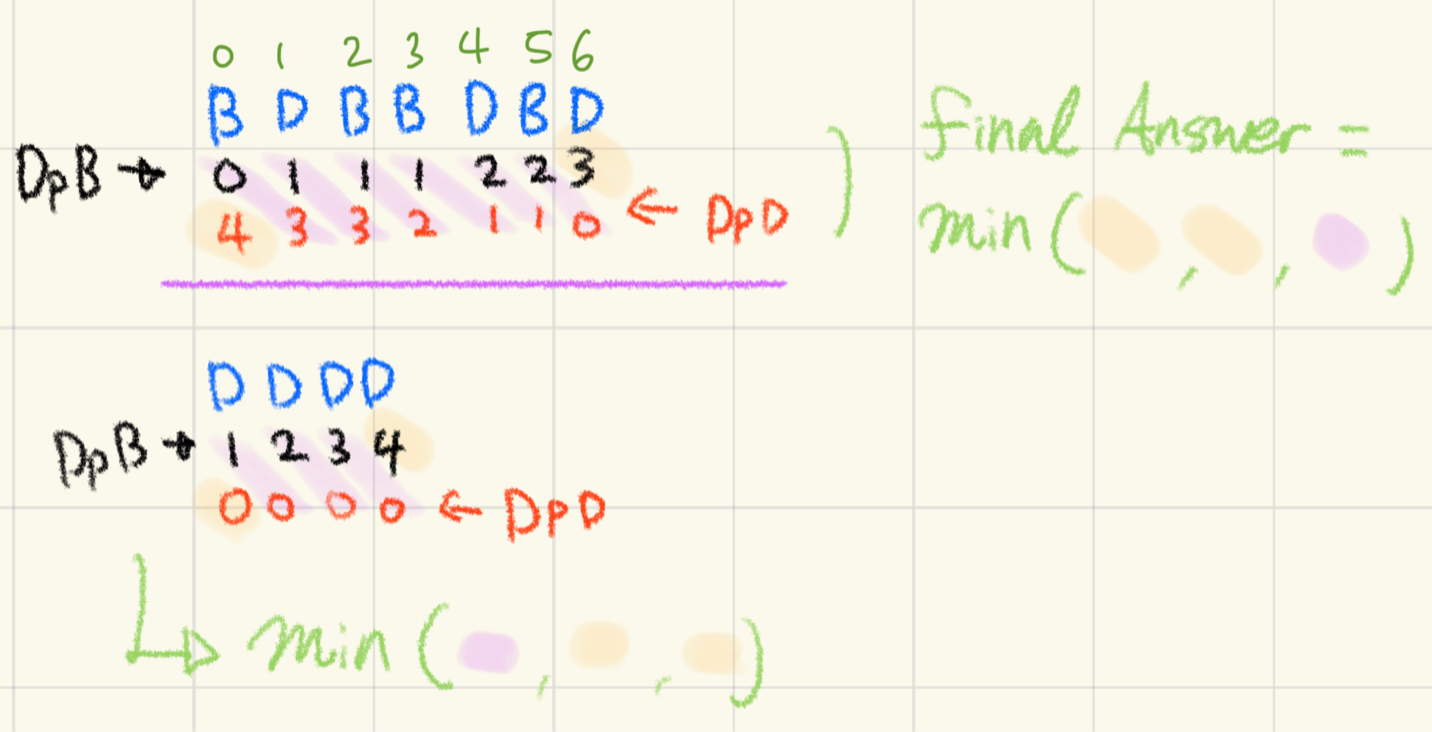 0 1 2 3 4 5 6
B D B B D B D
DpB → 0 1 1 1 2 2 3
4 3 3 2 1 1 0 ← DpD
)
final Answer =
min( , , )
D D D D
DpB → 1 2 3 4
0 0 0 0 ← DpD
↳ min( , , )